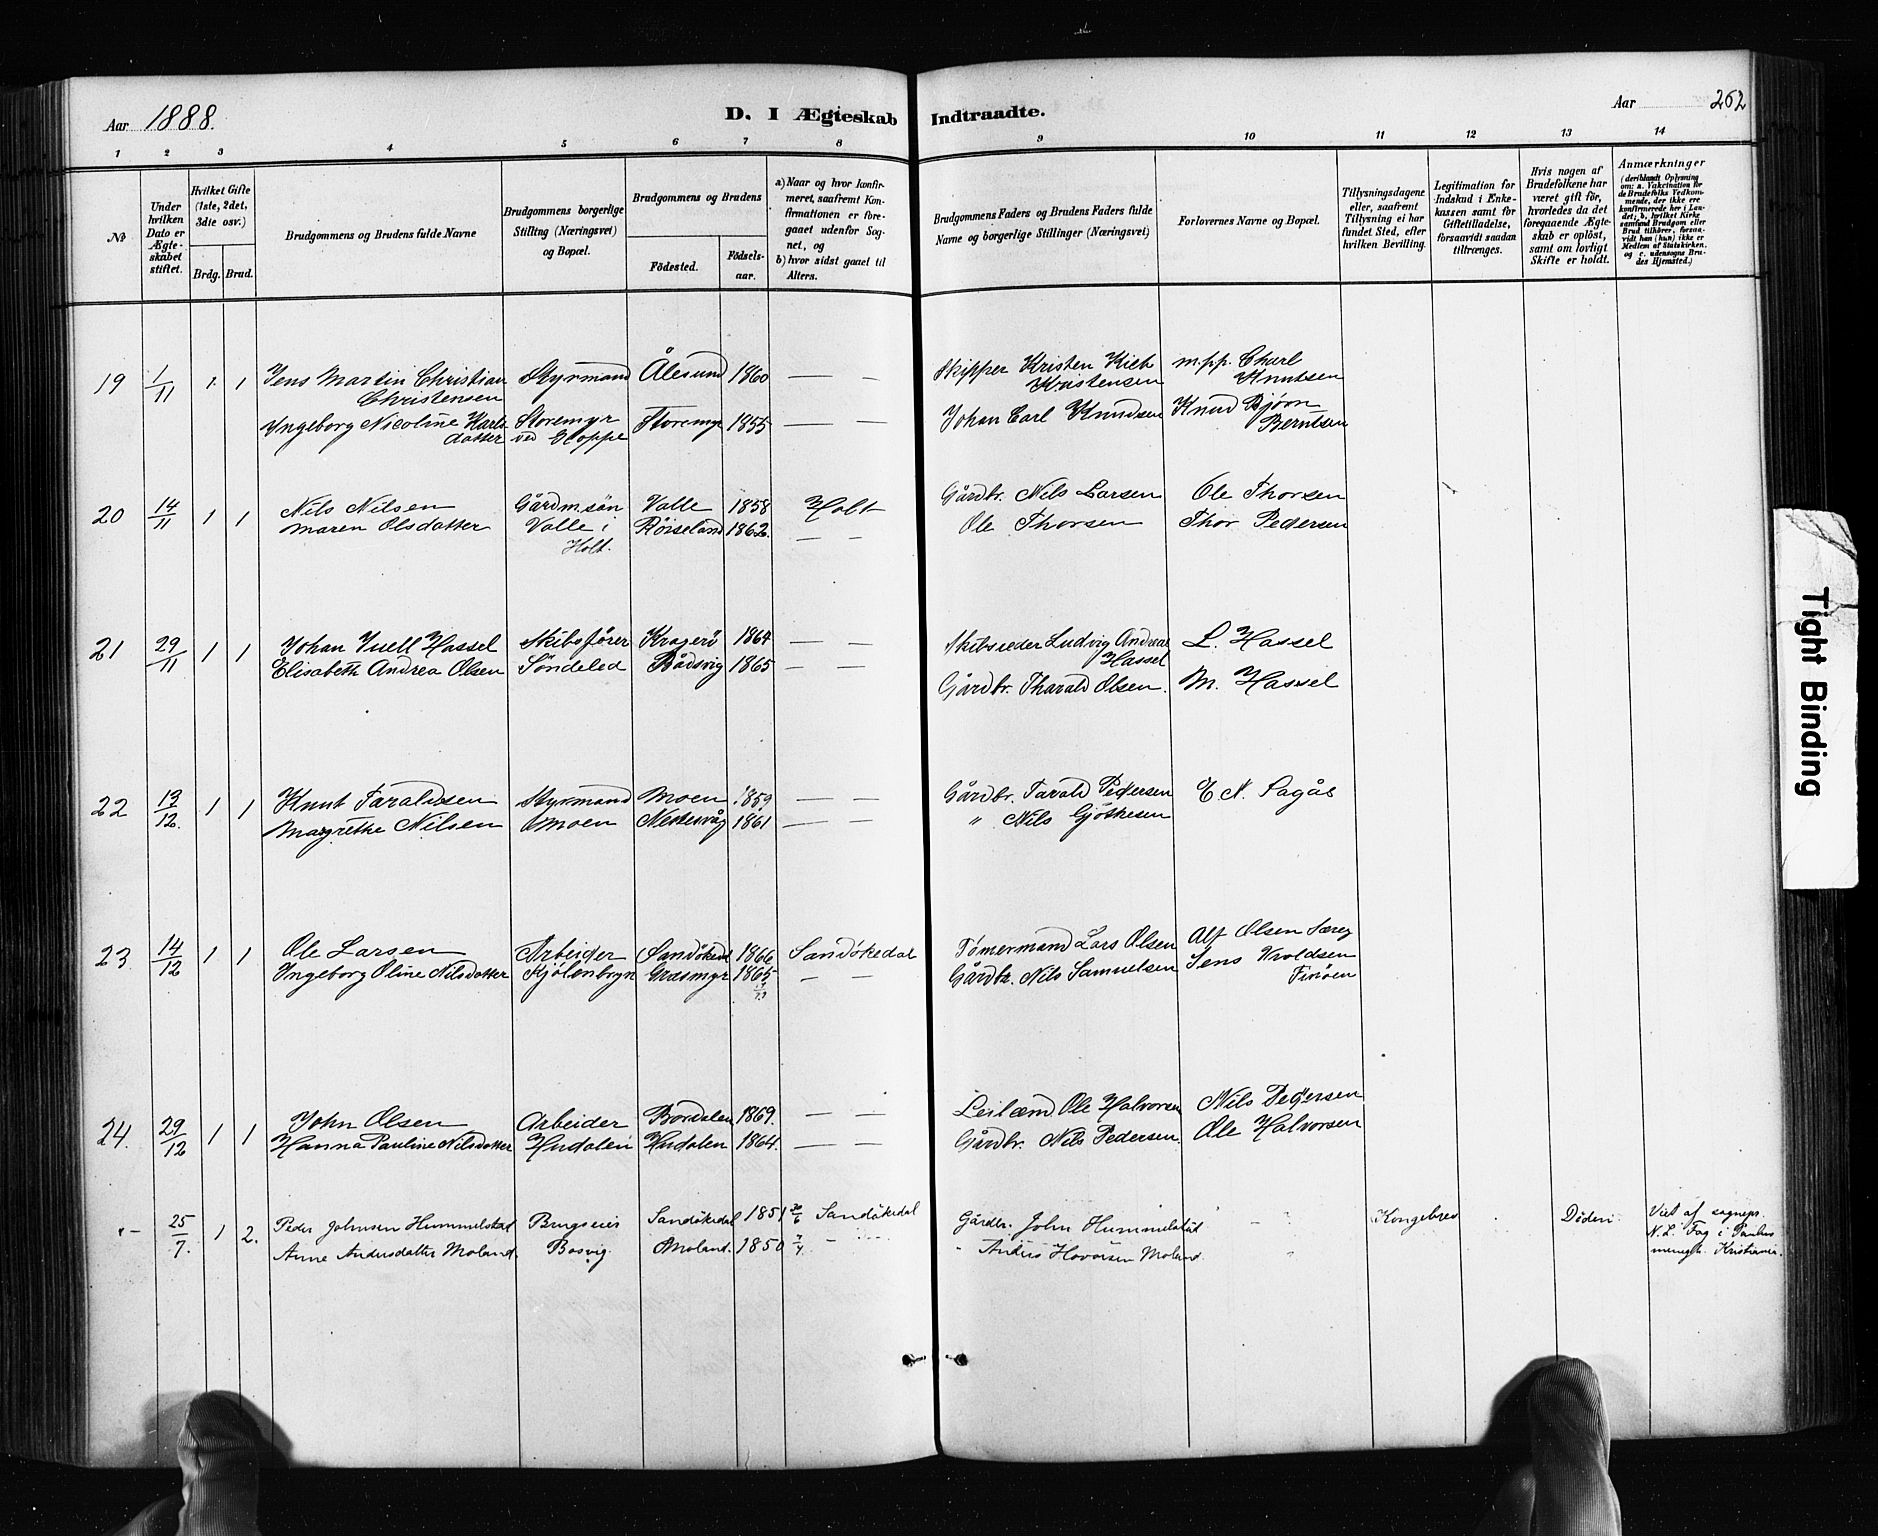 Aar 1888.
D. I Ægteskab Indtraadte.
Aar 262
1 2 3 4 5 6 7 8 9 10 11 12 13 14
№
Under hvilken Dato er Ægteskabet stiftet.
Hvilket Gifte (1ste, 2det, 3die osv.)
Brdg. Brud.
Brudgommens og Brudens fulde Navne
Brudgommens borgerlige Stilling (Næringsvei) og Bopæl.
Brudgommens og Brudens
Fødested.
Fødselsaar.
a) Naar og hvor konfirmeret, saafremt Konfirmationen er foregaaet udenfor Sognet, og
b) hvor sidst gaaet til Alters.
Brudgommens Faders og Brudens Faders fulde Navne og borgerlige Stillinger (Næringsvei)
Forlovernes Navne og Bopæl.
Tillysningsdagene eller, saafremt Tillysning ei har fundet Sted, efter hvilken Bevilling.
Legitimation for Indskud i Enkekassen samt for Giftetilladelse, forsaavidt saadan tiltrænges.
Hvis nogen af Brudefolkene har været gift før, hvorledes da det foregaaende Ægteskab er opløst, samt om lovligt Skifte er holdt.
Anmærkninger
(deriblandt Oplysning om: a. Vakcination for de Brudefolks Vedkommende, der ikke ere konfirmerede her i Landet; b. hvilket Kirkesamfund Brudgom eller Brud tilhører, forsaavidt han (hun) ikke er Medlem af Statskirken, og c. udensogns Brudes Hjemsted.)
19 1/11 1. 1 Jens Martin Christian Styrmand Ålesund 1860 — — Skipper Kristen m.p.p. Charl
Christensen Kristensen Knutsen
Ingeborg Nicoline Karls Storemyr Storemyr 1855 — — Johan Carl Knudsen Knud Bjørn
datter ved Berntsen
20 14/11 1 1 Nils Nilsen Gårdm.søn Valle 1858 Holt Gårdbr. Nils Larsen Ole Thorsen
Maren Olsdatter Valle i Røiseland 1862. — — Ole Thorsen Thor Pedersen
Holt.
21 29/11 1 1 Johan Juell Hassel Skibsfører Kragerø 1864 — — Skibsreder Ludvig Andreas L. Hassel
Hassel
Elisabeth Andrea Olsen Søndeled Rødsvig 1865 — — Gårdbr. Tharald Olsen. M. Hassel
22 13/12. 1 1 Knut Taraldsen Styrmand Moen 1859 — — Gårdbr. Tarald Pedersen E N. Lagås
Margrethe Nilsen Moen 1861 — — " Nils
23. 14/12 1 1 Ole Larsen Arbeider Sandøked 1866 Sandøkedal Tømermand Lars Olsen Alf Olsen
Ingeborg Oline Nilsdatter Græsmyr 1865 — — Gårdbr. Nils Samuelsen Jens
24. 29/12 1 1 John Olsen Arbeider Bordalen 1869. — — Leilænd. Ole Halvorsen Nils Pedersen
Hanna Pauline Nilsdatter Hudalen Hudalen 1864. — — Gårdbr. Nils Pedersen. Ole Halvorsen
"- 25/7. 1 2. Peder Johnsen Hummelstad Brugseier Sandøkedal 1851 Sandøkedal Gårdbr. John Hummelstad " " Kongebrev Døden. Viet af sognepr.
Anne Andersdatter Moland. Bosvig. Moland. 1850 Hovorsen Moland. " N. L. Fag i Paulus
menigh. Kristiania.
Tight Binding